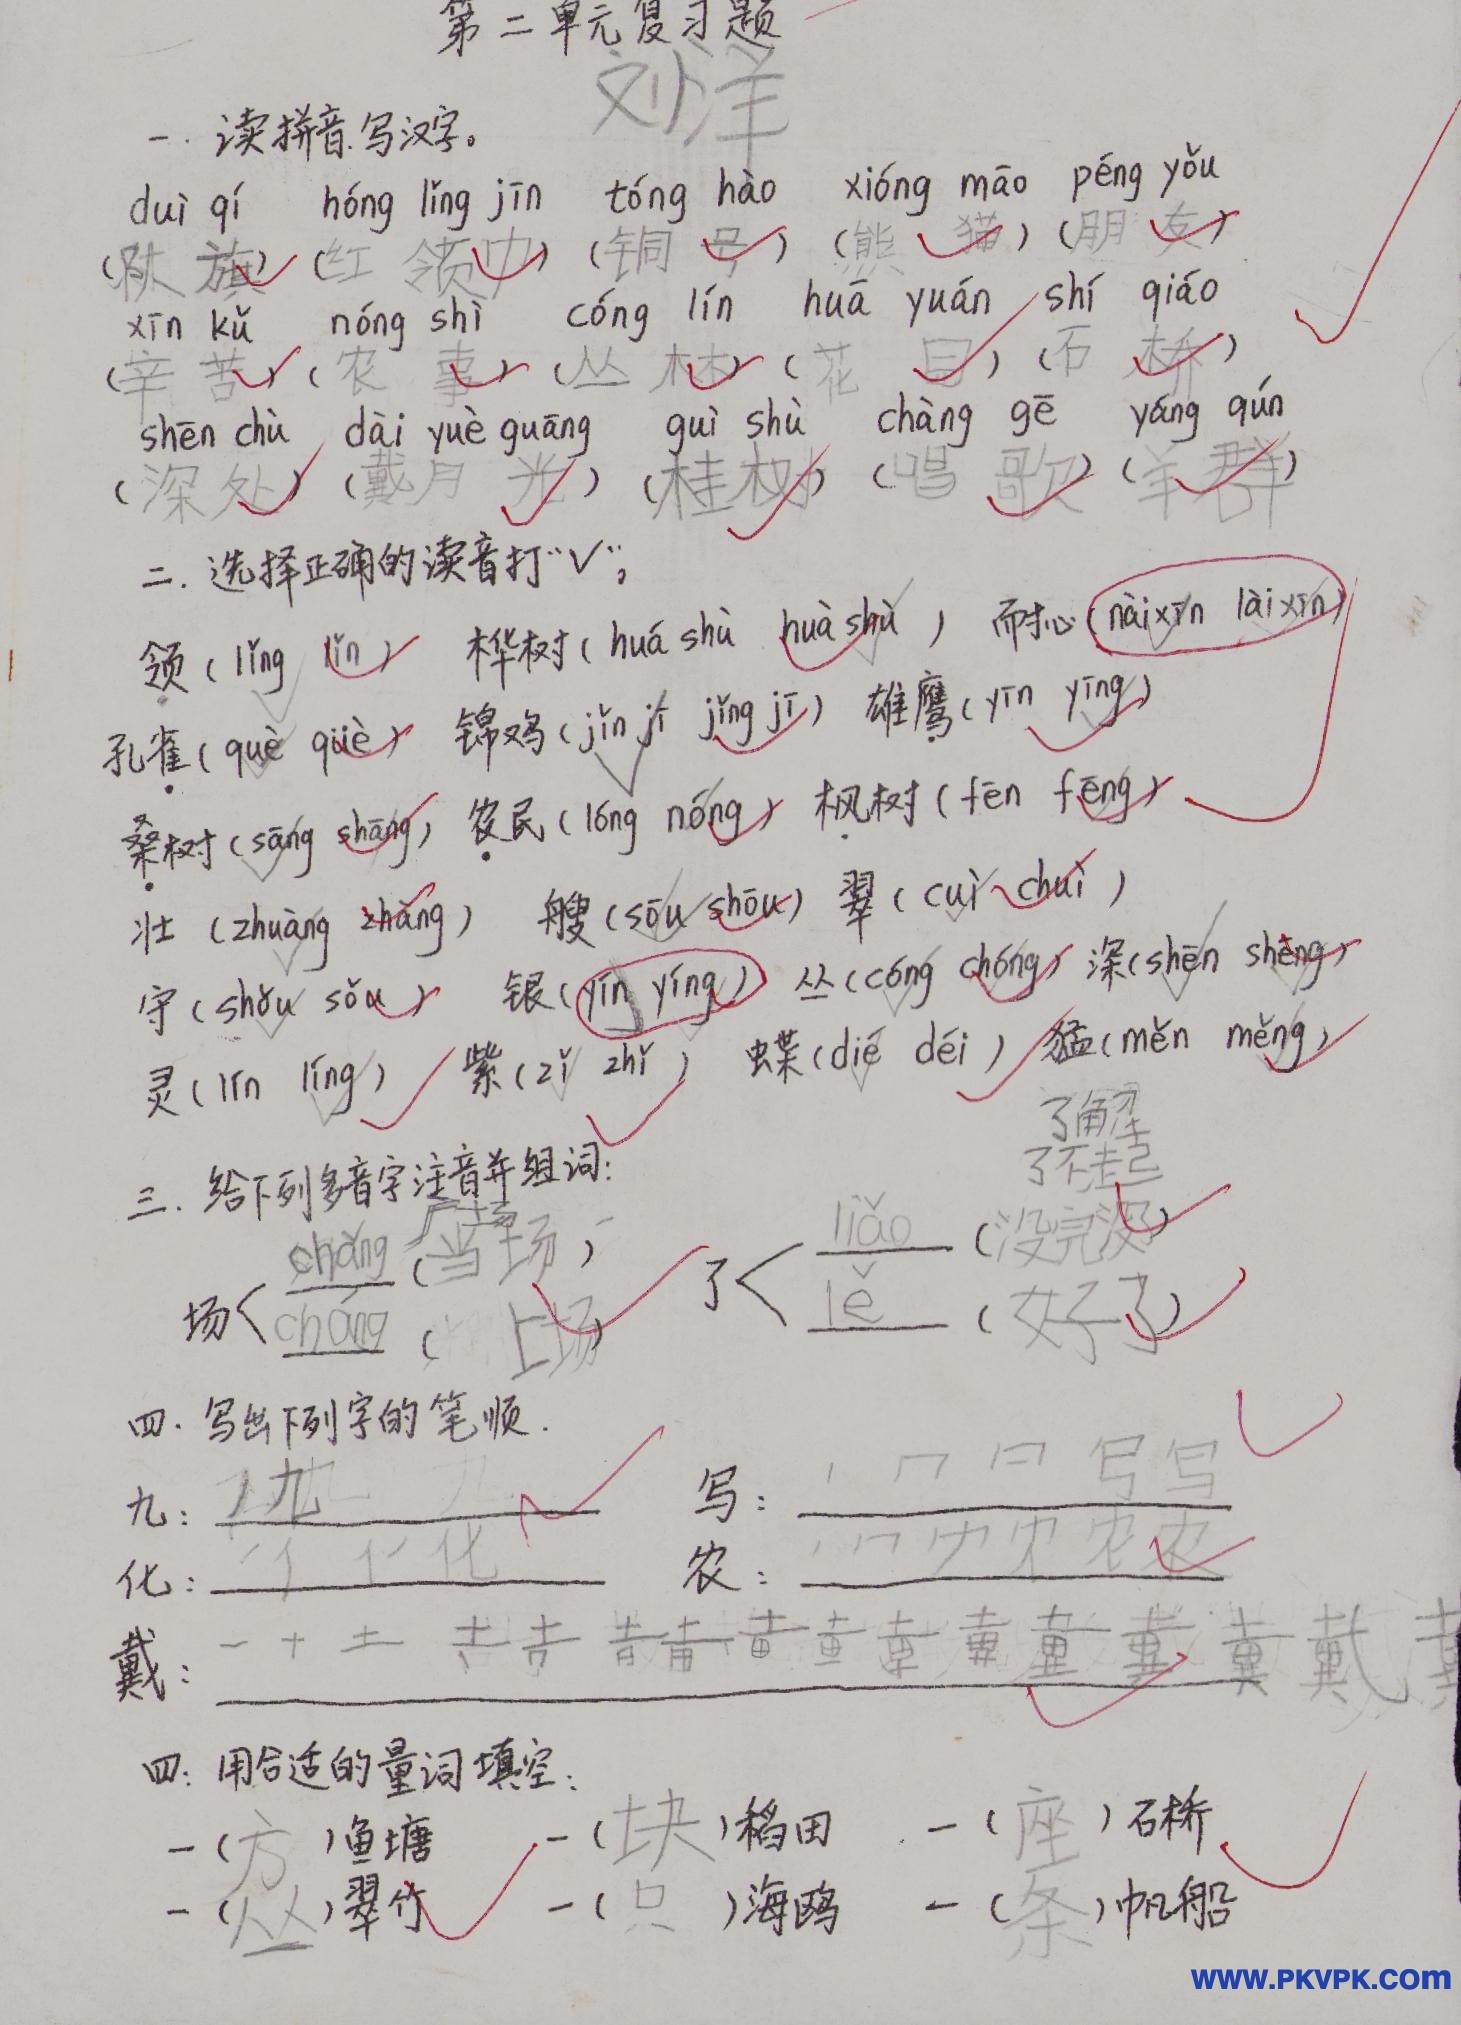 第二单元复习题
刘洋
一. 读拼音.写汉字。
duì qí hóng lǐng jīn tóng hào xióng māo péng yǒu
(队旗) (红领巾) (铜号) (熊猫) (朋友)
xīn kǔ nóng shì cóng lín huā yuán shí qiáo
(辛苦) (农事) (丛林) (花园) (石桥)
shēn chù dài yuè guāng guì shù chàng gē yáng qún
(深处) (戴月光) (桂树) (唱歌) (羊群)
二. 选择正确的读音打“√”;
领(lǐng lǐn) 桦树(huá shù huà shù) 耐心(nàixīn làixīn)
孔雀(què qüè) 锦鸡(jǐn jī jǐng jī) 雄鹰(yīn yīng)
桑树(sāng shāng) 农民(lóng nóng) 枫树(fēn fēng)
壮(zhuàng zhàng) 艘(sōu shōu) 翠(cuì chuì)
守(shǒu sǒu) 银(yín yíng) 丛(cóng chóng) 深(shēn shēng)
灵(lín líng) 紫(zǐ zhǐ) 蝶(dié déi) 猛(měn měng)
了解
了不起
三. 给下列多音字注音并组词:
广场
场< chǎng (当场) 了< liǎo (没完没)
cháng (上场) lě (好了)
四. 写出下列字的笔顺.
九: 丿九 写: 丶冖写写
化: 丿亻化 农: 丶冖农农
戴: 一十土戴
四: 用合适的量词填空:
一(方)鱼塘 一(块)稻田 一(座)石桥
一(丛)翠竹 一(只)海鸥 一(条)帆船
www.PKVPK.com